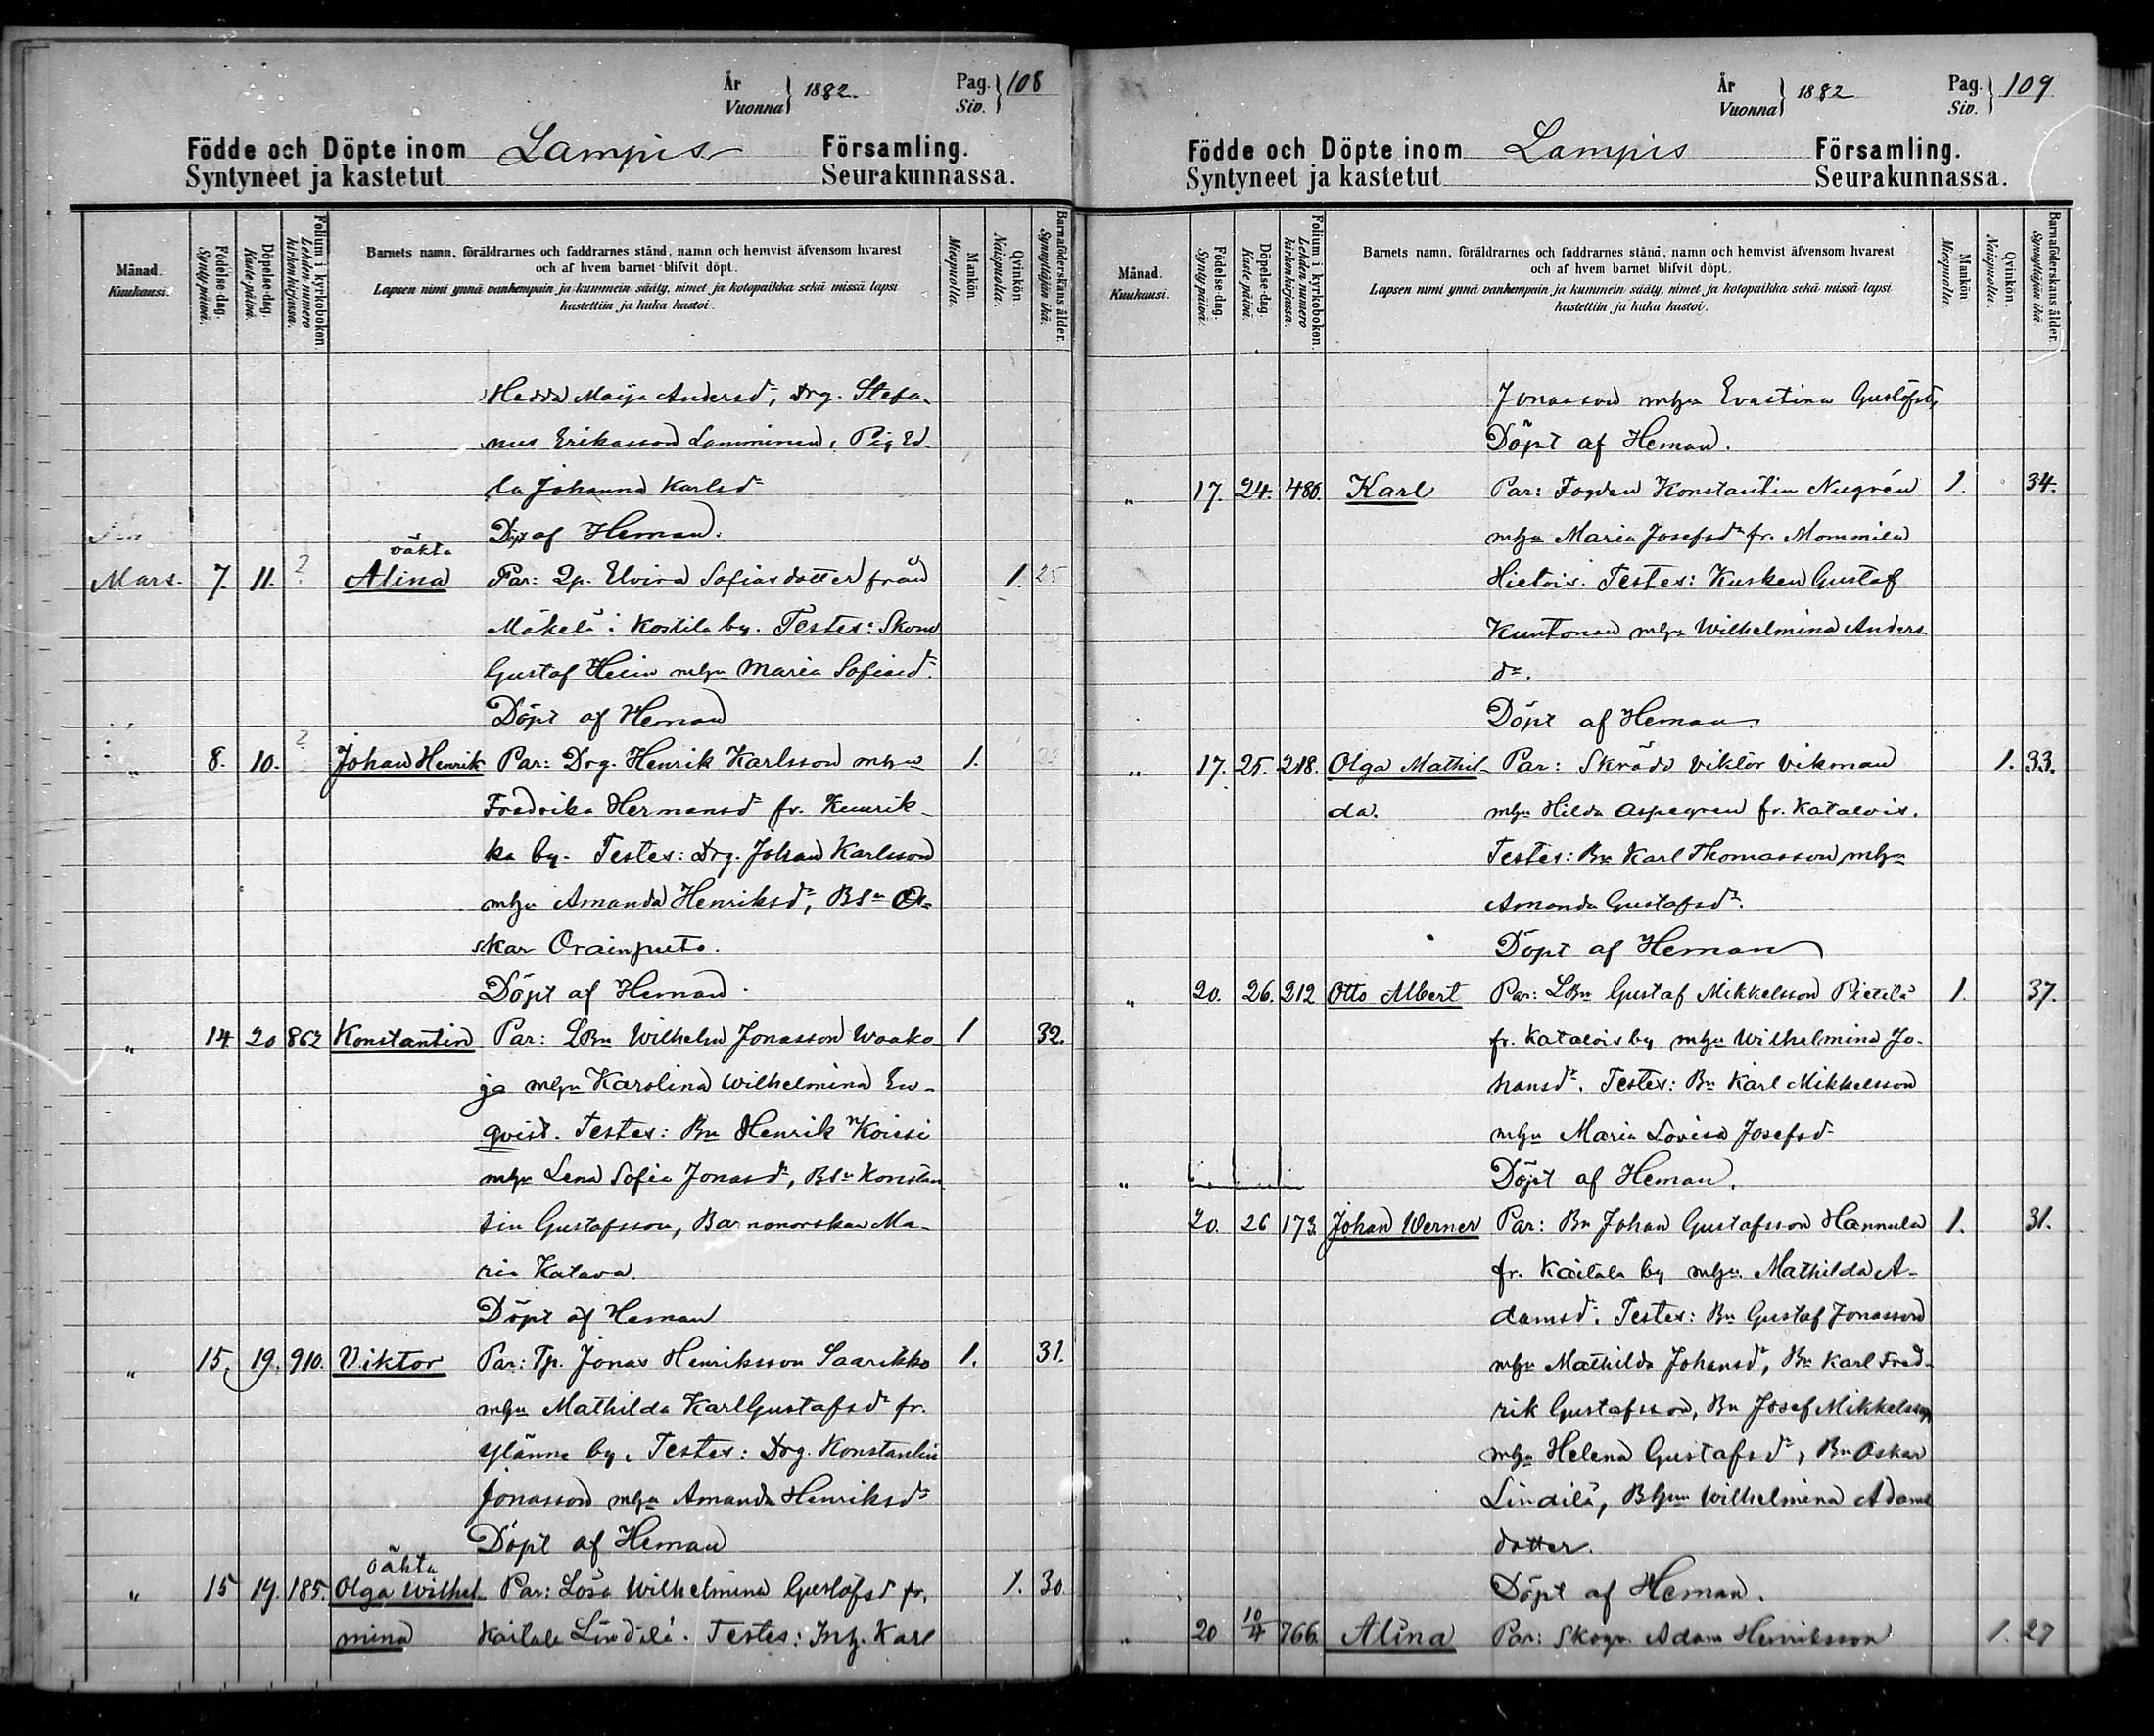 År Vuonna } 1882. Pag. Siv. } 108
Födde och Döpte inom Lampis Församling.
Syntyneet ja kastetut Seurakunnassa.
Månad. Kuukausi.
Födelse-dag. Synty-päivä.
Döpelse-dag. Kaste-päivä.
Folium i kyrkoboken. Lehden numero kirkonkirjassa.
Barnets namn, föräldrarnes och faddrarnes stånd, namn och hemvist äfvensom hvarest
och af hvem barnet blifvit döpt.
Lapsen nimi ynnä vanhempain ja kummein sääty, nimet ja kotopaikka sekä missä lapsi
kastettiin ja kuka kastoi.
Mankön. Miespuolia.
Qvinkön. Naispuolia.
Barnaföderskans ålder. Synnyttäjän ikä.
Hedda Maija Andersdr, Drg. Stefa-
nus Eriksson Lamminen, Pig Ed-
la Johanna Karlsdr
Döpt af Heman.
oäkta
Mars. 7. 11. ? Alina Par: Qp. Elvira Sofiasdotter från 1. 25
Mäkelä i Kostila by. Testes: Skom
Gustaf Hein mhu Maria Sofiasdr.
Döpt af Heman
" 8. 10. ? Johan Henrik Par: Drg. Henrik Karlsson mhu 1.
Fredrika Hermansdr fr. Kuurik-
ka by. Testes: Drg. Johan Karlsson
mhu Amanda Henriksdr, Bsn O-
skar Orainputo.
Döpt af Heman.
" 14. 20 862 Konstantin Par: LBn Wilhelm Jonasson Waako 1 32.
ja mhu Karolina Wilhelmina En-
qvist. Testes: Bn Henrik Koissi
mhu Lena Sofia Jonasdr, Bsn Konstan
tin Gustafsson, Barnmorskan Ma-
ria Katava.
Döpt af Heman
" 15. 19. 910. Viktor Par: Tp. Jonas Henriksson Saarikko 1. 31.
mhu Mathilda KarlGustafsdr fr.
Ylänne by. Testes: Drg. Konstantin
Jonasson mhu Amanda Henriksdr
Döpt af Heman
oäkta
" 15 19. 185. Olga Wilhel- Par: Lösa Wilhelmina Gustafsd fr. 1. 30
mina Kaitala Lindilä. Testes: Inh. Karl
År Vuonna } 1882 Pag. Siv. } 109
Födde och Döpte inom Lampis Församling.
Syntyneet ja kastetut Seurakunnassa.
Månad. Kuukausi.
Födelse-dag. Synty-päivä.
Döpelse-dag. Kaste-päivä.
Folium i kyrkoboken. Lehden numero kirkonkirjassa.
Barnets namn, föräldrarnes och faddrarnes stånd, namn och hemvist äfvensom hvarest
och af hvem barnet blifvit döpt.
Lapsen nimi ynnä vanhempain ja kummein sääty, nimet ja kotopaikka sekä missä lapsi
kastettiin ja kuka kastoi.
Mankön. Miespuolia.
Qvinkön. Naispuolia.
Barnaföderskans ålder. Synnyttäjän ikä
Jonasson mhu Evastina Gustafsd,
Döpt af Heman.
" 17. 24. 486. Karl Par: Fogden Konstantin Nugrén 1. 34.
mhu Maria Josefsdr fr. Mommila
Hietois. Testes: Kusken Gustaf
Kuntonen mhu Wilhelmina Anders-
dr.
Döpt af Heman
" 17. 25. 218. Olga Mathil- Par: Skrädd Viktor Vikman 1. 33.
da. mhu Hilda Aspegren fr. Katalois.
Testes: Bn Karl Thomasson mhu
Amanda Gustafsdr.
Döpt af Heman
" 20. 26. 212 Otto Albert Par: LBn Gustaf Mikkelsson Pietilä 1. 37.
fr. Kataloisby mhu Wilhelmina Jo-
hansdr. Testes: Bn Karl Mikkelsson
mhu Maria Lovisa Josefsd
" Döpt af Heman.
20. 26 173 Johan Werner Par: Bn Johan Gustafsson Hannula 1. 31.
fr. Kaitala by mhu Mathilda A-
damsdr. Testes: Bn Gustaf Jonasson
mhu Mathilda Johansdr, Bn Karl Fred-
rik Gustafsson, Bn Josef Mikkelsson
mhu Helena Gustafsdr, Bn Oskar
Lindilä, Bhun Wilhelmina Adams
dotter.
Döpt af Heman.
" 20 10/4 766. Alina Par: Skogv. Adam Henriksson 1. 27